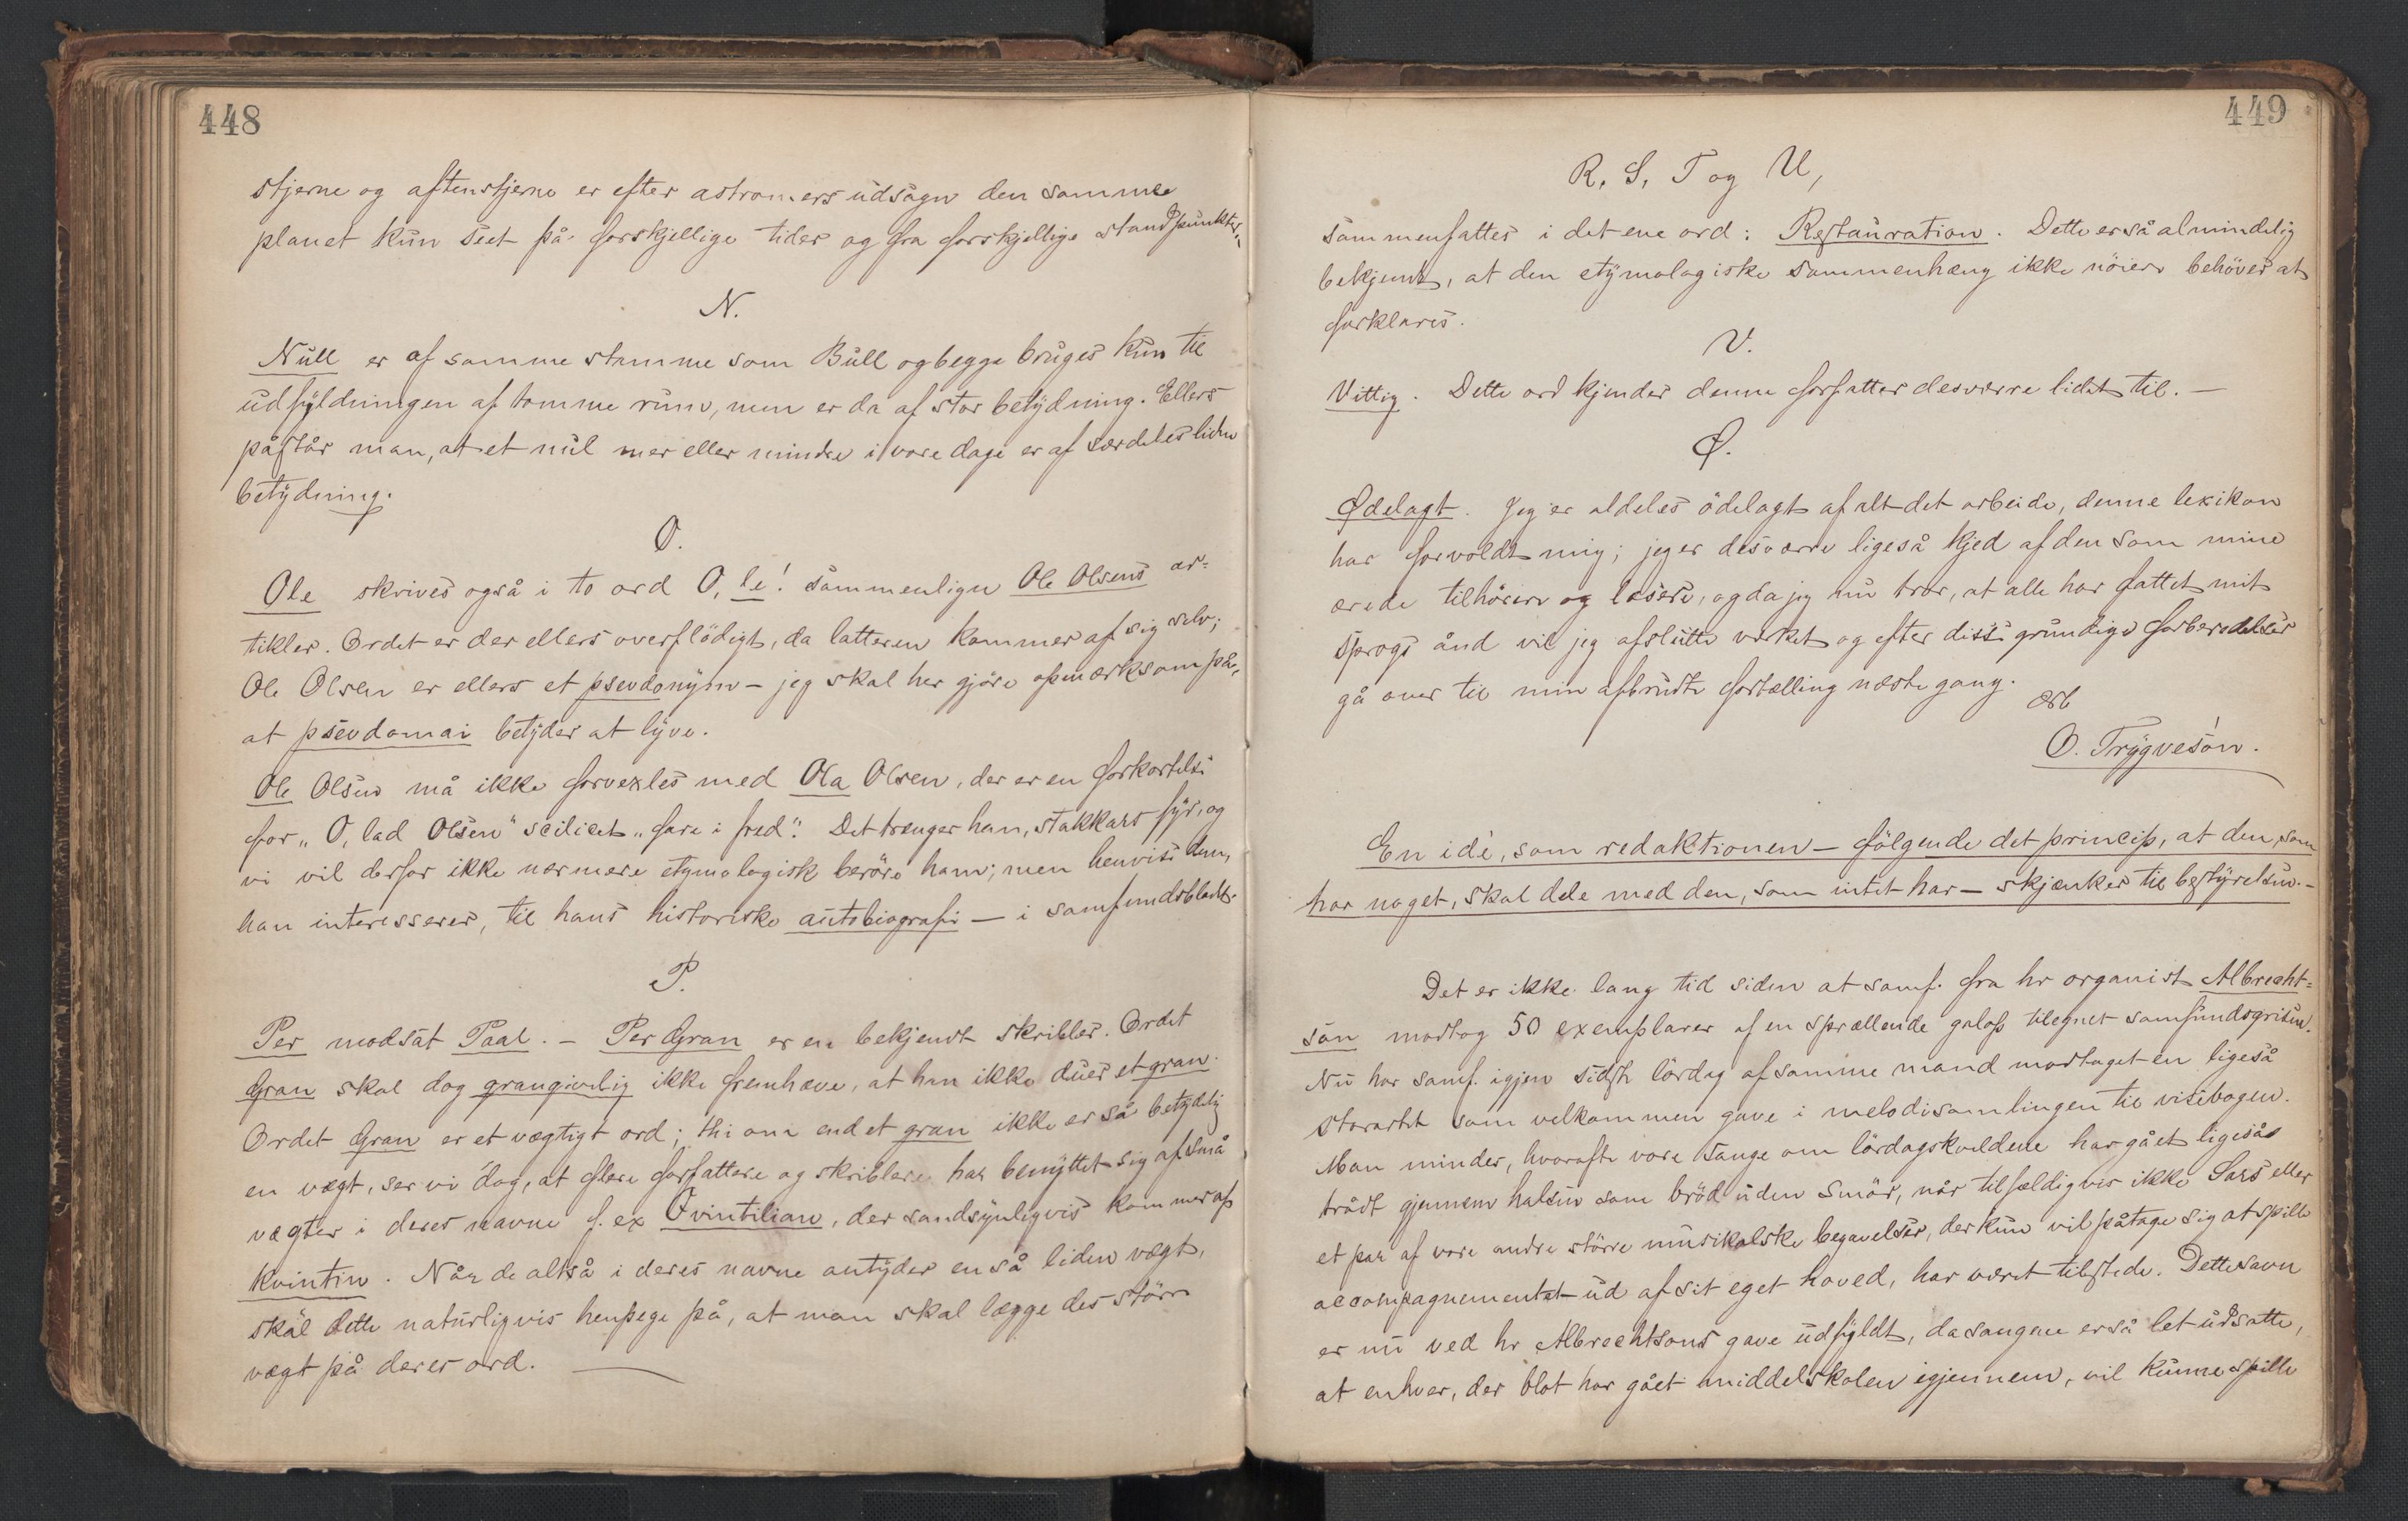 448
stjerne og aftenstjerne er efter astromers udsagn den samme
planet kun seet på forskjellige tider og fra forskjellige standpunkter.
N.
Null er af samme stamme som Bull og begge bruges kun til
udfyldningen af tomme rum, men er da af stor betydning. Ellers
påstår man, at et nul mer eller mindre i vore dage er af særdeles liden
betydning.
O.
Ole skrives også i to ord O, le! sammenlign Ole Olsens ar-
tikler. Ordet er der ellers overflödigt, da latteren kommer af sig selv;
Ole Olsen er ellers et psevdonym – jeg skal her gjöre opmærksom på,
at psevdomai betyder at lyve.
Ole Olsen må ikke forvexles med Ola Olsen, der er en forkortelse
for „O, lad Olsen" scilicet „fare i fred". Det trænger han, stakkars fyr, og
vi vil derfor ikke nærmere etymologisk beröre ham; men henvise dem,
han interesserer, til hans historiske autobiografi – i samfundsbladet.
P.
Per modsat Paal. – Per Gran er en bekjendt skribler. Ordet
Gran skal dog grangivelig ikke fremhæve, at han ikke duer et gran.
Ordet Gran er et vægtigt ord; thi om end et gran ikke er så betydelig
en vægt, ser vi dog, at flere forfattere og skriblere har benyttet sig af små
vægter i deres navne f. ex Qvintilian, der sandsynligvis kommer af
kvintin. Når de altså i deres navne antyder en så liden vægt,
skal dette naturligvis henpege på, at man skal lægge des större
vægt på deres ord. —
449
R, S, T og U,
sammenfattes i det ene ord: Restauration. Dette er så almindelig
bekjendt, at den etymologiske sammenhæng ikke nöiere behöves at
forklares.
V.
Vittig. Dette ord kjender denne forfatter desværre lidet til. –
Ø.
Ødelagt. Jeg er aldeles ödelagt af alt det arbeide, denne lexikon
har forvoldt mig; jeg er desværre ligeså kjed af den som mine
ærede tilhörere og læsere, og da jeg nu tror, at alle har fattet mit
sprogs ånd vil jeg afslutte værket og efter disse grundige forberedelser
gå over til min afbrudte fortælling næste gang.
ærb
O. Trygvesön.
En idé, som redaktionen – fölgende det princip, at den, som
har noget, skal dele med den, som intet har – skjænker til bestyrelsen. –
Det er ikke lang tid siden at samf. fra hr organist Albrecht-
sön modtog 50 exemplarer af en sprællende galop tilegnet samfundsgrisen.
Nu har samf. igjen sidste lördag af samme mand modtaget en ligeså
storartet som velkommen gave i melodisamlingen til visebogen.
Man mindes, hvorofte vore sange om lördagskveldene har gået ligeså
trådt gjennem halsen som bröd uden smör, når tilfældigvis ikke Sars eller
et par af vore andre större musikalske begavelser, der kun vil påtage sig at spille
accompagnementet ud af sit eget hoved, har været tilstede. Dette savn
er nu ved hr Albrechtsons gave udfyldt, da sangene er så let udsatte,
at enhver, der blot har gået middelskolen igjennem, vil kunne spille